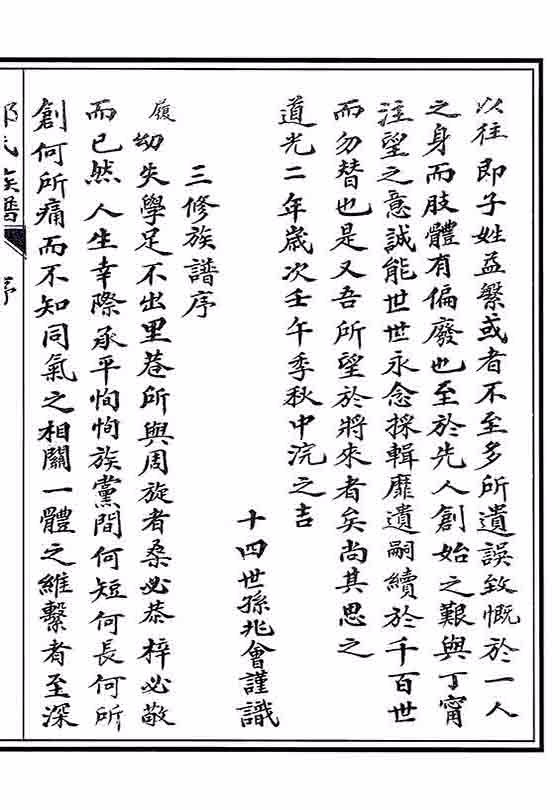 以往即子姓益繁或者不至多所遺誤致慨於一人
之身而肢體有偏廢也至於先人創始之艱與丁甯
注望之意誠能世世永念採輯靡遺嗣續於千百世
而勿替也是又吾所望於將來者矣尚其思之
道光二年歲次壬午季秋中浣之吉
十四世孫兆會謹識
三修族譜序
履幼失學足不出里巷所與周旋者桑必恭梓必敬
而已然人生幸際承平恂恂族黨間何短何長何所
創何所痛而不知同氣之相關一體之維繫者至深
氏族譜
序